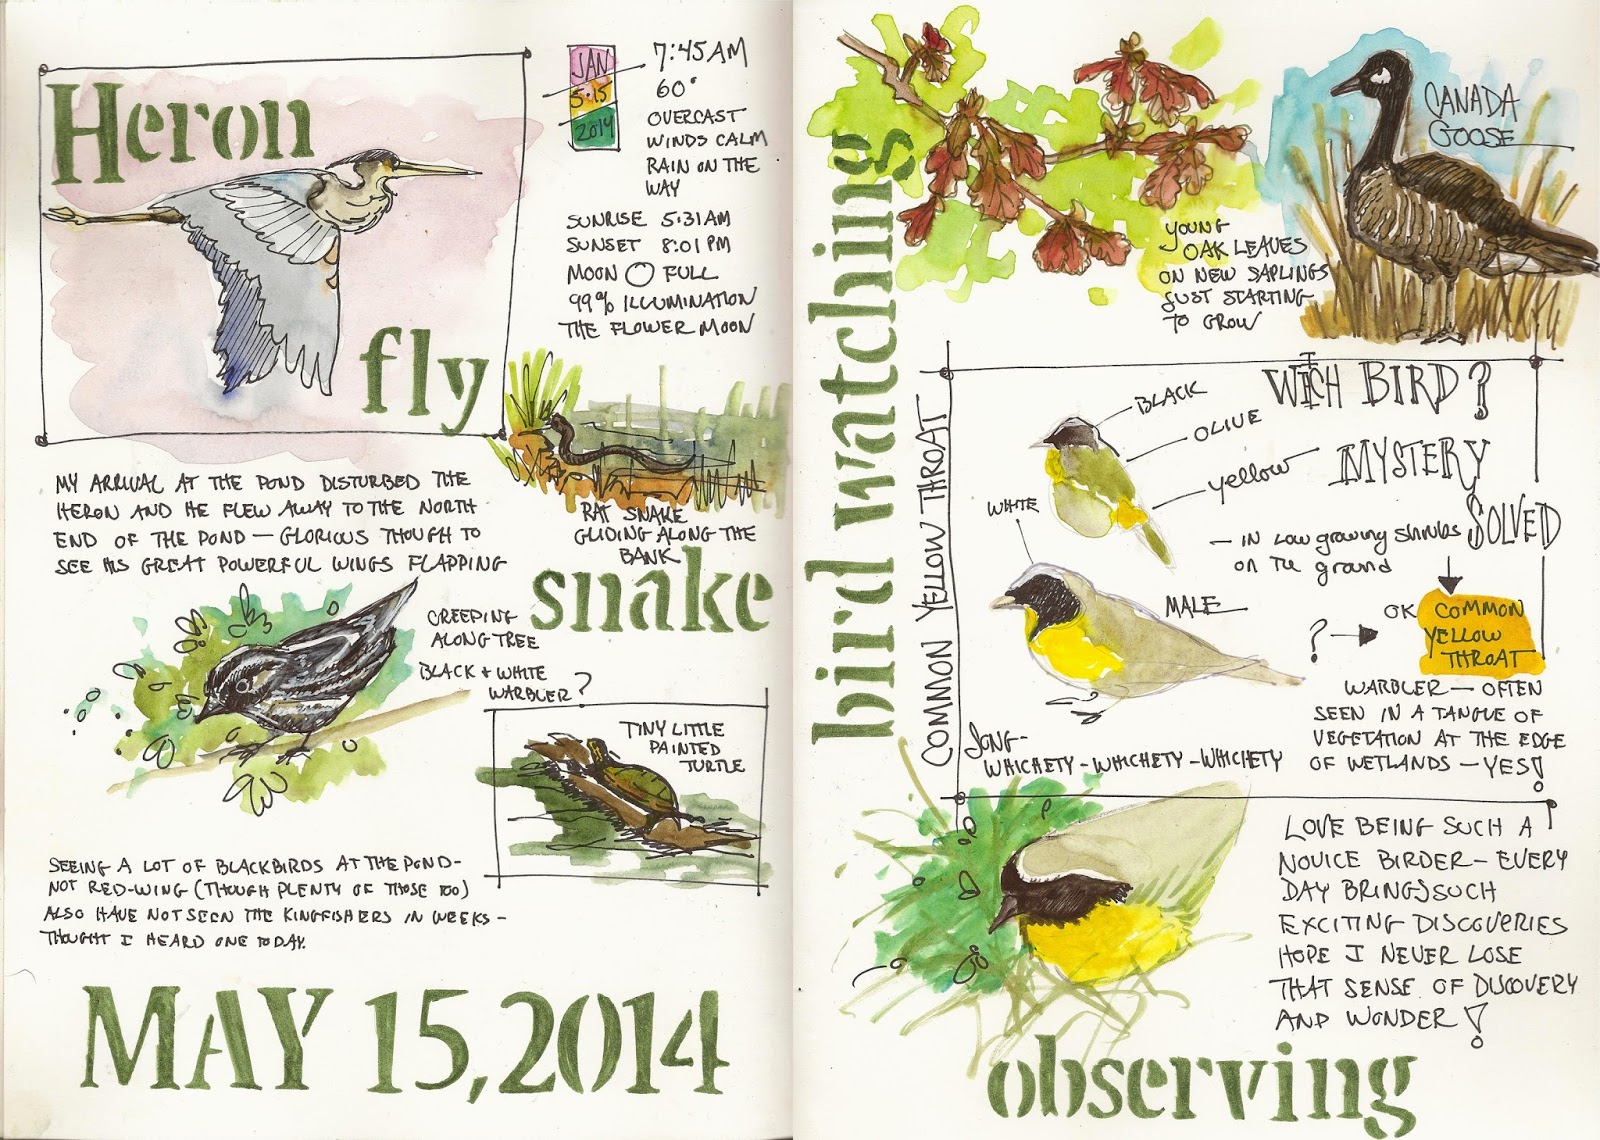 Heron
fly
JAN
5·15
2014
7:45AM
60°
OVERCAST
WINDS CALM
RAIN ON THE
WAY
SUNRISE 5:31AM
SUNSET 8:01PM
MOON FULL
99% ILLUMINATION
THE FLOWER MOON
MY ARRIVAL AT THE POND DISTURBED THE
HERON AND HE FLEW AWAY TO THE NORTH
END OF THE POND — GLORIOUS THOUGH TO
SEE HIS GREAT POWERFUL WINGS FLAPPING
RAT SNAKE
GLIDING ALONG THE
BANK
snake
CREEPING
ALONG TREE
BLACK + WHITE
WARBLER?
TINY LITTLE
PAINTED
TURTLE
SEEING A LOT OF BLACKBIRDS AT THE POND-
NOT RED-WING (THOUGH PLENTY OF THOSE TOO)
ALSO HAVE NOT SEEN THE KINGFISHERS IN WEEKS-
THOUGHT I HEARD ONE TODAY.
MAY 15, 2014
bird watching
YOUNG
OAK LEAVES
ON NEW SAPLINGS
JUST STARTING
TO GROW
CANADA
GOOSE
COMMON YELLOW THROAT
WHICH BIRD?
MYSTERY
SOLVED
BLACK
OLIVE
yellow
WHITE
— IN Low growing shrubs
on the ground
MALE
? → OK COMMON
YELLOW
THROAT
WARBLER — OFTEN
SEEN IN A TANGLE OF
VEGETATION AT THE EDGE
OF WETLANDS — YES!
SONG-
WHICHETY - WHICHETY - WHICHETY
LOVE BEING SUCH A
NOVICE BIRDER — EVERY
DAY BRINGS SUCH
EXCITING DISCOVERIES
HOPE I NEVER LOSE
THAT SENSE OF DISCOVERY
AND WONDER!
observing